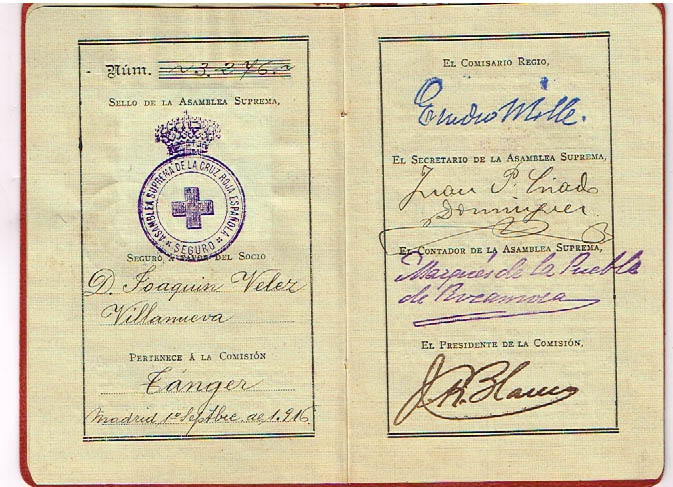 Núm. 3.276
SELLO DE LA ASAMBLEA SUPREMA,
ASAMBLEA SUPREMA DE LA CRUZ ROJA ESPAÑOLA
SEGURO
SEGURO Á FAVOR DEL SOCIO
D. Joaquin Velez
Villanueva
PERTENECE Á LA COMISIÓN
Tánger
Madrid 1º Septbre. de 1.916
EL COMISARIO REGIO,
Mille.
EL SECRETARIO DE LA ASAMBLEA SUPREMA,
Juan P. Criado
Dominguez
EL CONTADOR DE LA ASAMBLEA SUPREMA,
Marqués de la Puebla
de Rocamora
EL PRESIDENTE DE LA COMISIÓN,
Blanco